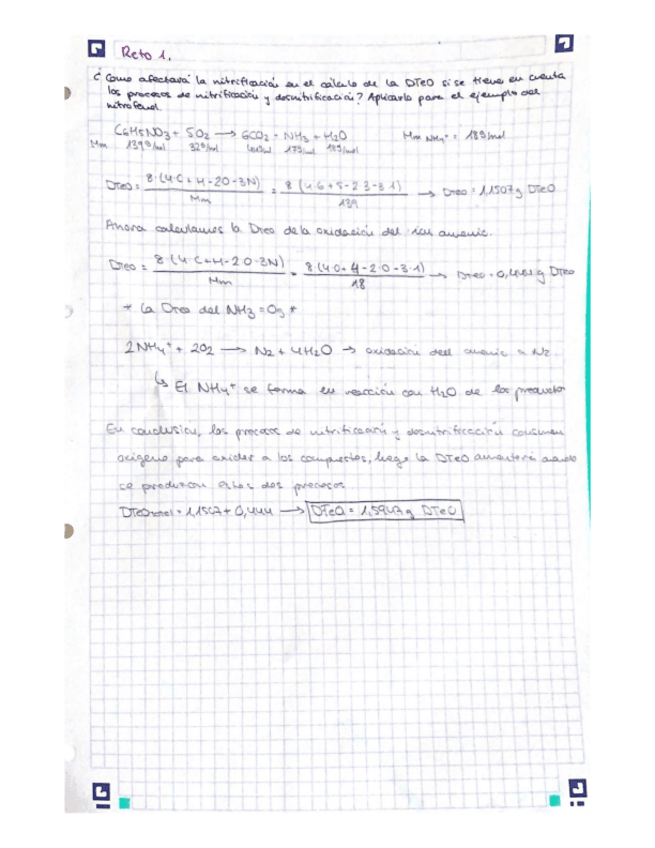 Reto 1.
¿Como afectará la nitrificación en el cálculo de la DTeO si se tiene en cuenta
los procesos de nitrificación y desnitrificación? Aplicarlo para el ejemplo del
nitrofenol.
C6H5NO3 + 5O2 → 6CO2 + NH3 + H2O Mm NH4+ = 18g/mol
Mm 139g/mol 32g/mol 44g/mol 17g/mol 18g/mol
DTeO = 8·(4·C+H-2O-3N) / Mm = 8(4·6+5-2·3-3·1) / 139 → DTeO = 1,1507g DTeO
Ahora calculamos la DTeO de la oxidación del ion amonio.
DTeO = 8·(4·C+H-2·O-3N) / Mm = 8(4·0+4-2·0-3·1) / 18 → DTeO = 0,444 g DTeO
* La DTeO del NH3 = 0g *
2NH4+ + 2O2 → N2 + 4H2O → oxidación del amonio a N2.
↳ El NH4+ se forma en reacción con H2O de los productos
En conclusión, los procesos de nitrificación y desnitrificación consumen
oxígeno para oxidar a los compuestos, luego la DTeO aumentará cuando
se produzcan estos dos procesos.
DTeOtotal = 1,1507 + 0,444 → DTeO = 1,5947g DTeO